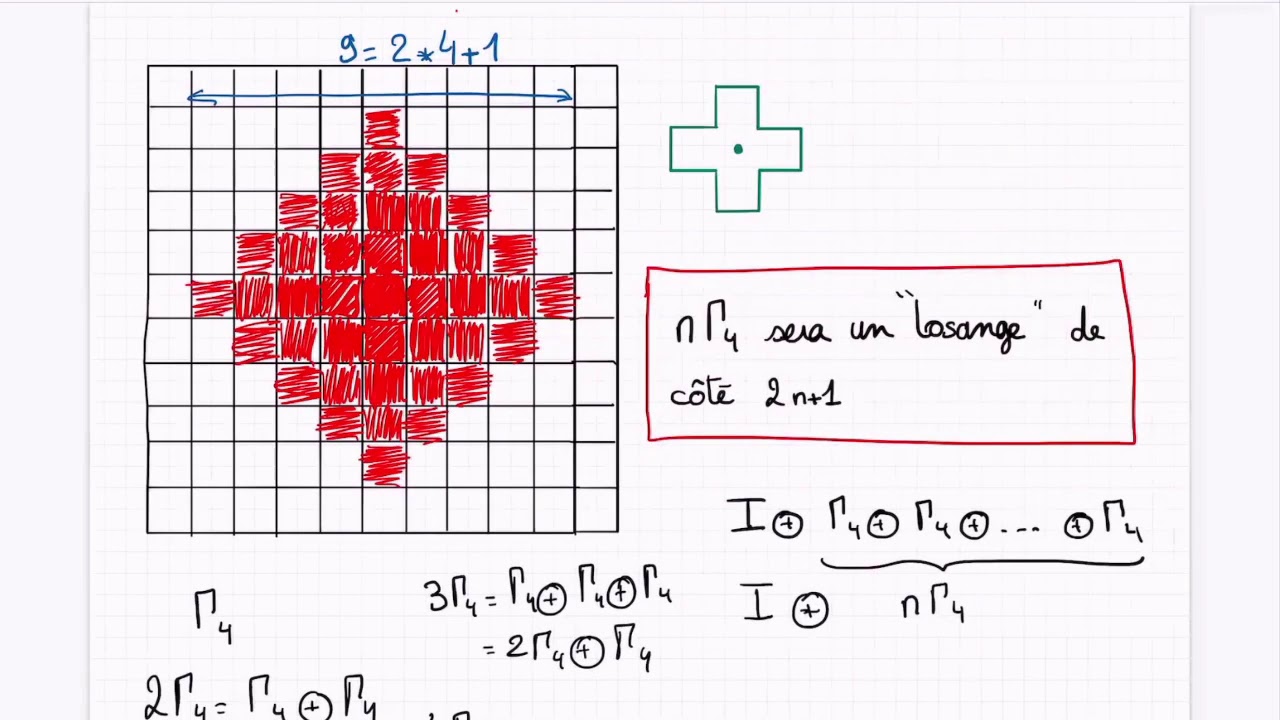 9 = 2 * 4 + 1
nΓ₄ sera un "losange" de
côté 2n+1
I ⊕ Γ₄ ⊕ Γ₄ ⊕ .... ⊕ Γ₄
I ⊕ nΓ₄
Γ₄
3Γ₄ = Γ₄ ⊕ Γ₄ ⊕ Γ₄
= 2Γ₄ ⊕ Γ₄
2Γ₄ = Γ₄ ⊕ Γ₄